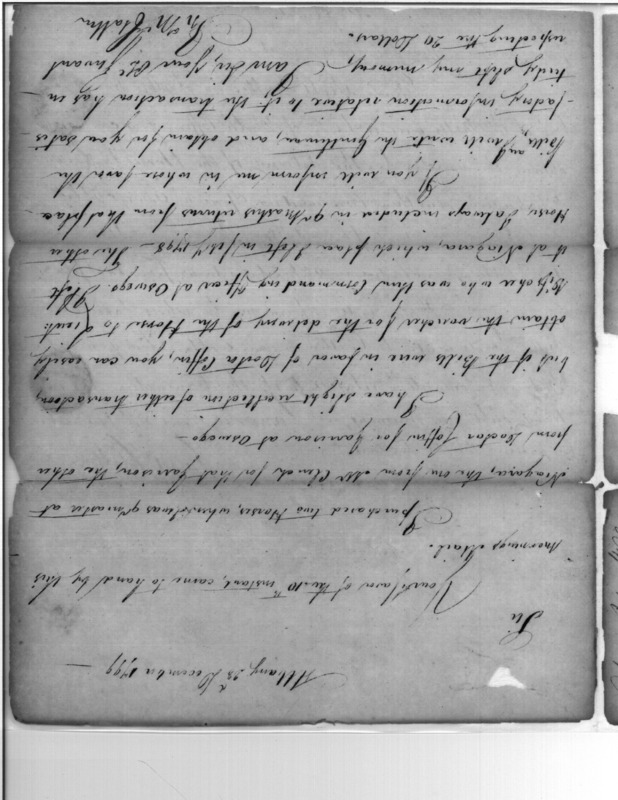 Albany, 23d December 1799 —
Sir
Your favor of the 10th instant, came to hand by this
mornings Mail.
I purchased two Horses, when I was qr master at
Niagara, the one from Mr Clench for that Garrison, the other
from Doctor Coffin for Garrison at Oswego —
I have slight recollection of either transaction,
but if the Bills were in favor of Doctor Coffin, you can easily
obtain the voucher for the delivery of the Horse to Lieut
Visscher who was then Commanding Officer at Oswego. I left
it at Niagara, which place I left in July 1798 — The other
Horse, I always included in qr Masters returns from that place —
If you will inform me in whose favor the
Bills are, I will write the Gentleman, and obtain for you satis-
factory information relative to it; the transaction has en-
tirely slipt my memory, I am Sir, Your Obt Servant
respecting the 20 Dollars.